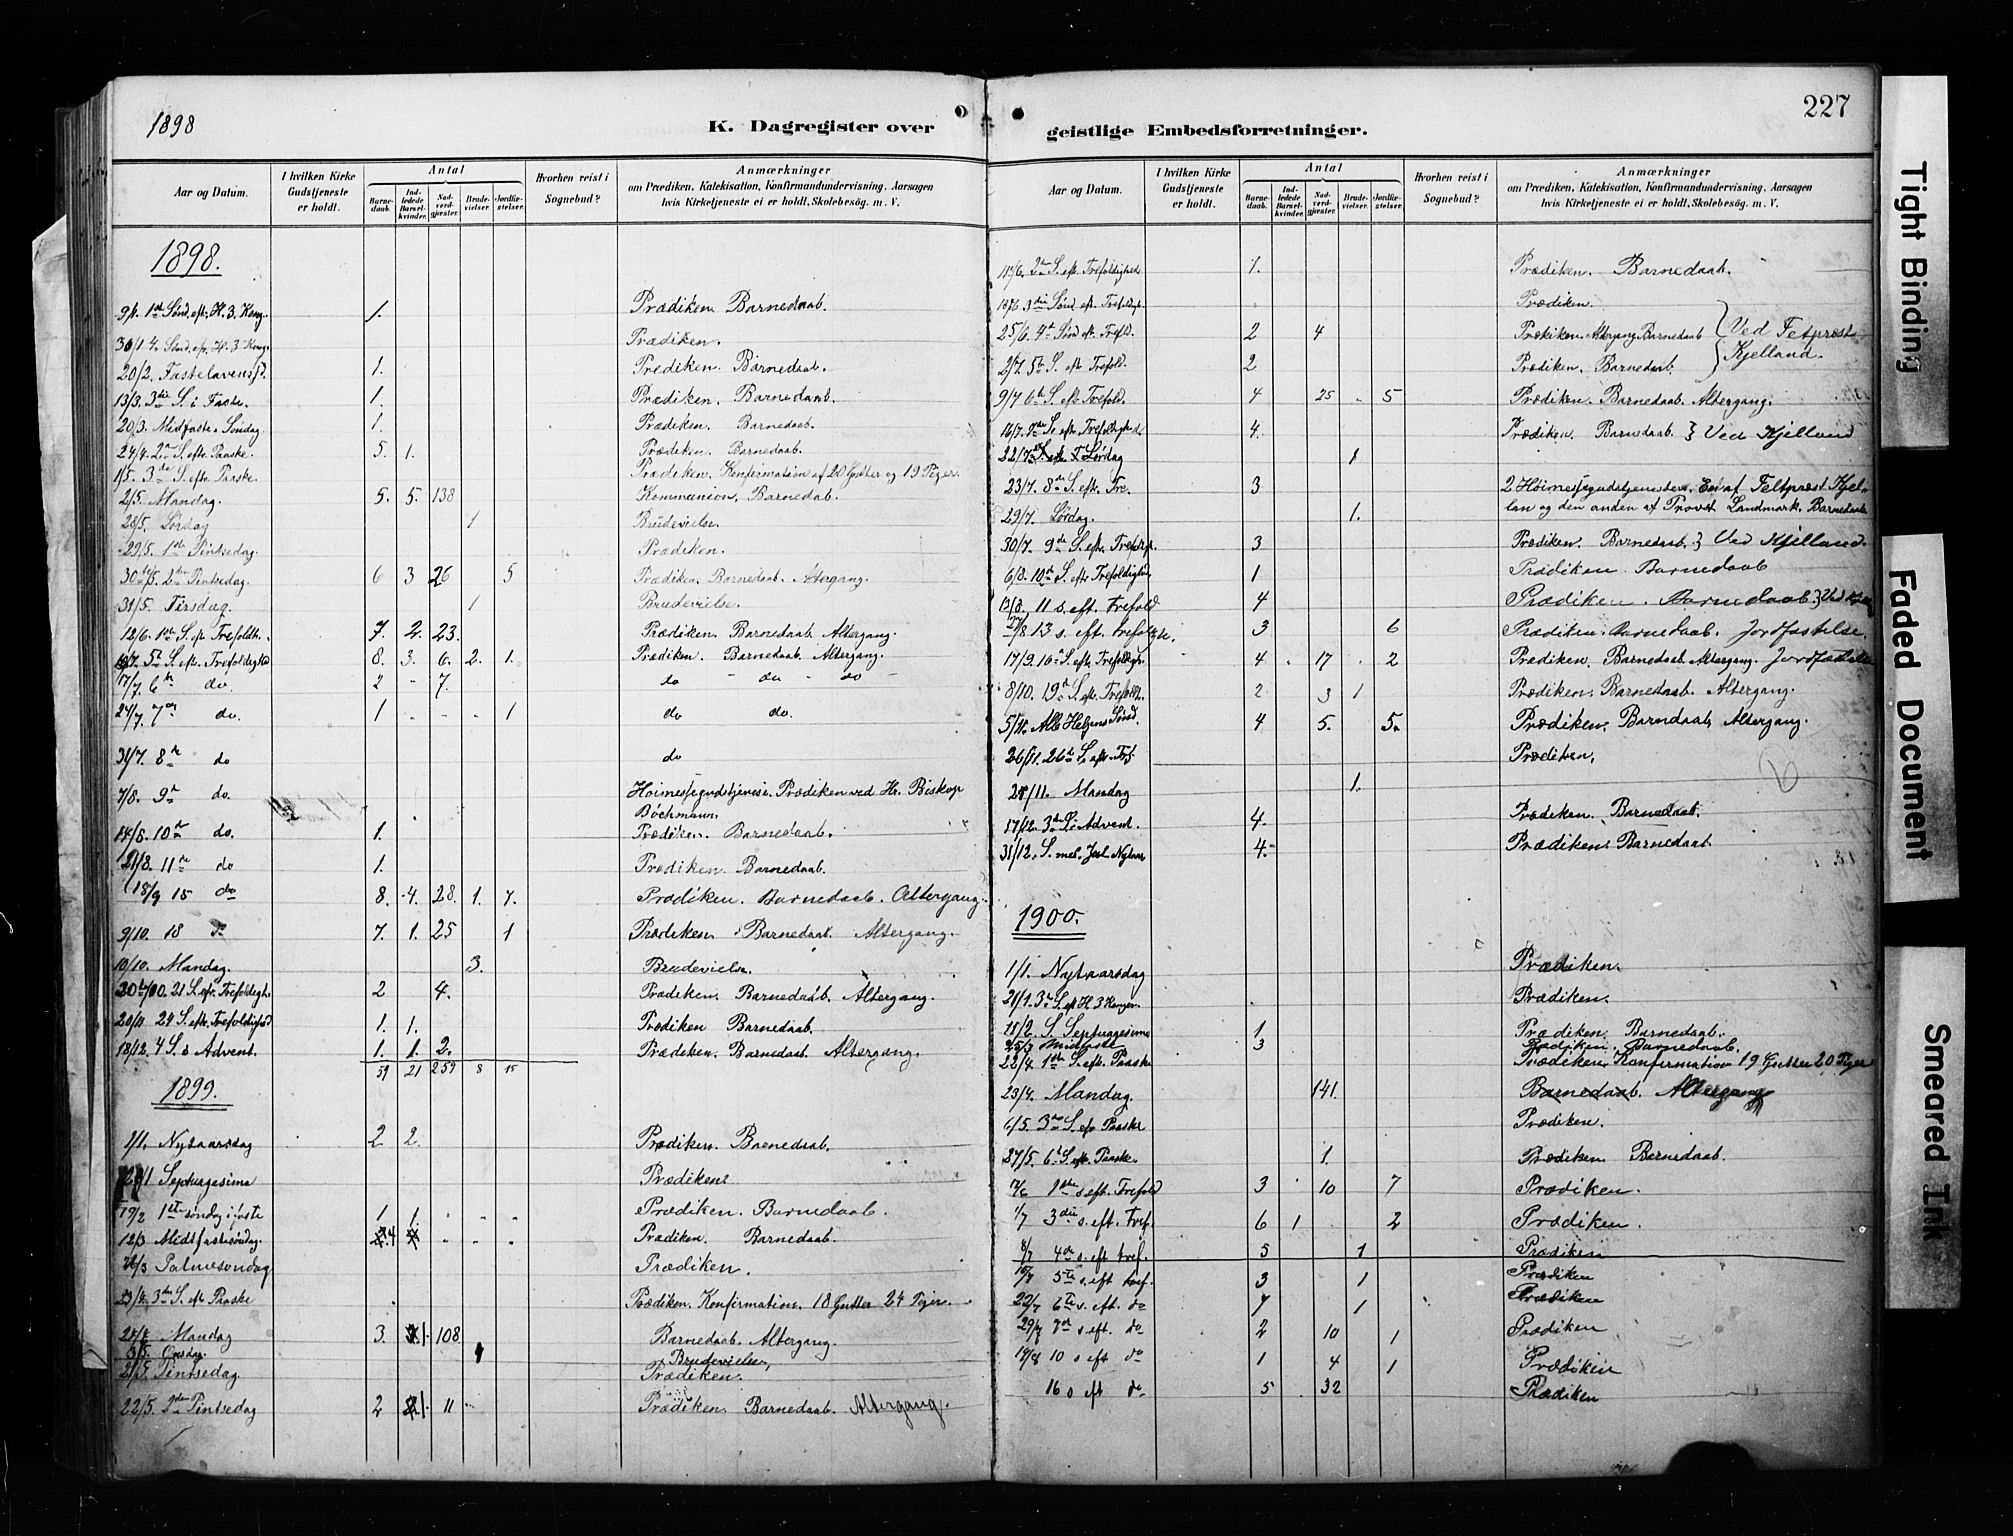 1898
K. Dagregister over
geistlige Embedsforretninger.
227
Aar og Datum.
I hvilken Kirke Gudstjeneste er holdt.
Antal
Barnedaab.
Indledede Barselkvinder.
Nadverdgjæster.
Brudevielser.
Jordfæstelser.
Hvorhen reist i Sognebud?
Anmærkninger
om Prædiken, Katekisation, Konfirmandundervisning, Aarsagen
hvis Kirketjeneste ei er holdt, Skolebesøg. m. V.
1898.
9/1. 1ste Sønd. eft. H. 3. Kong. 1. Prædiken Barnedaab.
30/1 4. Sønd. eft. H. 3 Kong. Prædiken.
20/2. Fastelavenssd. 1. Prediken. Barnedaab.
13/3. 3die S. i Faste. 1. Prædiken. Barnedaab.
20/3. Midfaste Søndag 1. Prædiken. Barnedaab.
24/4. 2n S. eftr. Paaske. 5. 1. Prædiken. Barnedaab.
1/5. 3die S. eftr. Paaske. Prædiken. Konfirmation af 20 Gutter og 19 Piger.
2/5. Mandag. 5. 5. 138 Kommunion, Barnedab.
28/5. Lørdag 1 Brudevielse.
29/5. 1ste Pintsedag. Prædiken.
30te/5. 2den Pintsedag. 6 3 26 5 Prædiken. Barnedaab. Altergang.
31/5. Tirsdag. 1 Brudevielse.
12/6. 1ste S. eft Trefoldh. 7. 2. 23. Prædiken. Barnedaab. Altergang.
10/7. 5te S. eftr. Trefoldighed 8. 3. 6. 2. 1. Prædiken. Barnedaab. Altergang.
17/7. 6te do. 2 - 7. do - do - do -
24/7. 7de do. 1 1 do do.
31/7. 8de do do
7/8. 9de do. Høimessegudstjenese. Prædiken ved Hr. Biskop
Böchmann.
14/8. 10de do. 1. Prædiken. Barnedaab.
21/8. 11te do 1. Prædiken. Barnedaab.
18/9 15 do 8. 4. 28. 1. 7. Prædiken. Barnedaab. Altergang.
9/10. 18 7. 1. 25 1 Prædiken. Barnedaab. Altergang.
10/10. Mandag. 3. Brudevielse.
30te/10. 21 S. eftr. Trefoldigh. 2 4. Prædiken. Barnedaab. Altergang.
20/11 24 S. eftr. Trefoldighed 1. 1. Prædiken Barnedaab.
18/12. 4 S. i Advent. 1. 1. 2. Prædiken. Barnedaab. Altergang.
59 21 259 8 15
1899.
1/1. Nytaarsdag 2 2. Prædiken. Barnedaab.
Septuagesima Prædiken
19/2 1ste søndag i faste 1 1. Prædiken. Barnedaab.
12/3 Midtfastesøndag. 4 Prædiken. Barnedaab
26/3 Palmesøndag Prædiken.
23/4 3die S. eft Paaske Prædiken. Konfirmation. 18 Gutter 24 Piger.
24/4 Mandag 3. 1. 108. Barnedaab. Altergang.
3/5. Onsdag. 1 Brudevielse,
21/5. Pintsedag Prædiken.
22/5. 2den Pintsedag 2 1. 11 Prædiken Barnedaab. Altergang.
2den S. eft. Trefoldighed 1. Prædiken. Barnedaab.
18/6 3die Sønd. eft. Trefoldigh. Prædiken.
25/6. 4de Sønd eft Trefold. 2 4 Prækiken. Altergang. Barnedaab } Ved Fetprest
2/7. 5te S. eft Trefold. 2 Prædiken. Barnedaab. } Kjelland.
9/7 6te S. eft Trefold. 4 25 5 Prædiken. Barnedaab. Altergang.
16/7. 7de S. eft. Trefoldighed. 4. Prædiken. Barnedaab. } Ved Kjelland
22/7 Lørdag 1.
23/7. 8de S. eftr. Tre. 3 2 Høimessegudstjenester. En af Feltprest Kjel-
lan og den anden af Provst Landmark. Barnedaab
29/7. Lørdag. 1.
30/7. 9de S. eftr. Trefoldgh. 3 Prædiken. Barnedaab. } Ved Kjelland.
6/8. 10de S. eftr Trefoldighd 1. Prædiken. Barnedaab
13/8. 11 s. eft. trefold 4 Prædiken. Barnedaab } Ved
27/8 13 s. eft. trefoldgh. 3 6 Prædiken. Barnedaab. Jordfæstelse.
17/9. 16de S. eftr. Trefoldigh. 4 17 2 Prædiken. Barnedaab. Altergang. Jordfæstelse
8/10. 19de S. eftr. Trefoldh. 2 3 1 Prædiken. Barnedaab. Altergang.
5/11. Alle Helgens Sønd. 4 5. 5. Prædiken. Barndaab, Altergang.
26/11. 26de S. eftr Tref. Prædiken.
28/11. Mandag 1.
17/12. 3die S. i Advent. 4. Prædiken. Barnedaab.
31/12. S. mel. Jul. Nytaar 4. Prædiken. Barnedaab.
1900.
1/1. Nytaarsdag Prædiken.
21/1. 3die S. eft H. 3 Konger. Prædiken.
11/2. S. Septuagesima 1 Prædiken. Barnedaab.
25/3 Midfaste 3 Prædiken. Barnedaab.
22/4. 1ste S. eft. Paaske Prædiken Konfirmation 19 Gutter 20 Piger
23/4. Mandag. 141. Barnedaab. Altergang
6/5. 3die S. eft Paaske Prædiken.
27/5. 6te S. eft. Paaske. 1. Prædiken Barnedaab.
17/6 1ste s. eft. Trefold 3 10 7 Prædiken.
1/7 3die s. eft. tref. 6 1 2 Prædiken.
8/7 4de s. eft tref. 5 1 Prædiken
15/7 5te s. eft tref. 3 1 Prædiken
22/7 6te s. eft. do 7 1 Prædiken
29/7 7de s. eft do 2 10 1 Prædiken
10 s eft do 1 4 1 Prædiken
16 s eft do 5 32 Prædiken
Tight Binding
Faded Document
Smeared Ink